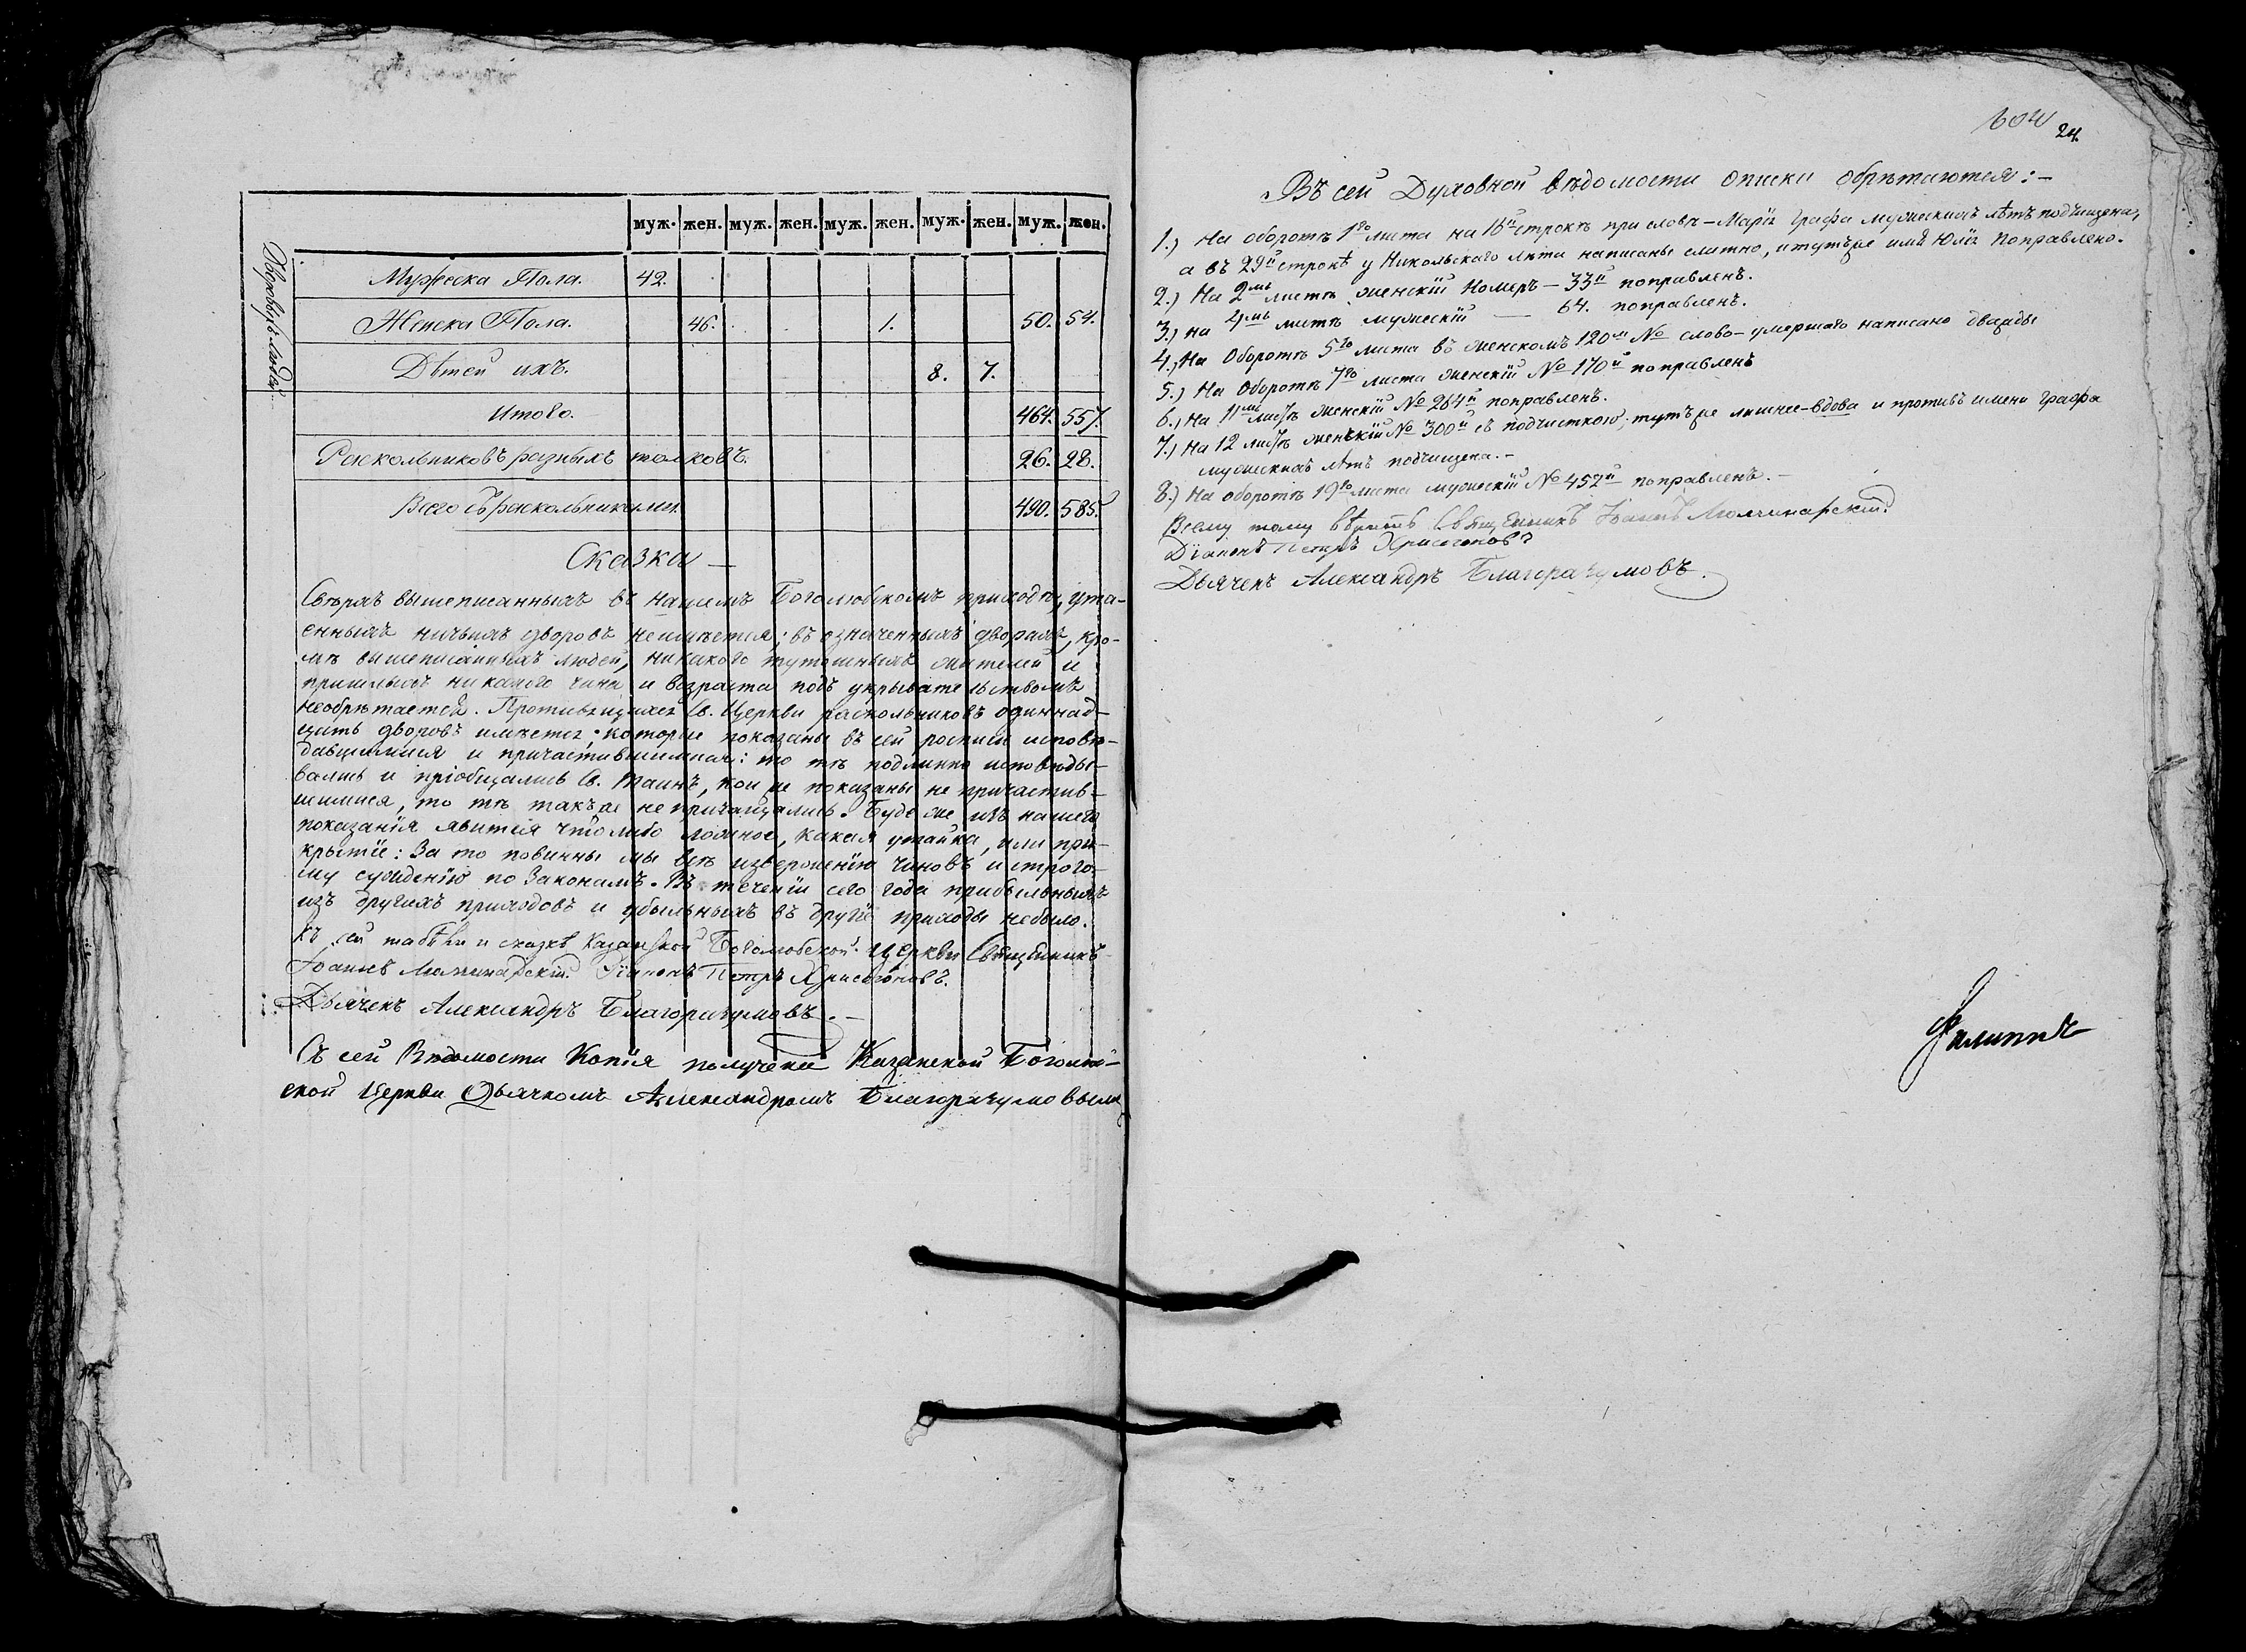 муж. жен. муж. жен. муж. жен. муж. жен. муж. жен.
Мужеска Пола. 42.
Женска Пола. 46. 1. 50. 54.
Дѣтей ихъ. 8. 7.
Итого. 464. 557.
Раскольниковъ разныхъ толковъ. 26. 28.
Всего съ раскольниками. 490. 585.
Сказка —
Сверхъ вышеписанныхъ въ нашемъ Боголюбскомъ приходѣ, ута-
енныхъ ничьихъ дворовъ неимѣется; въ означенныхъ дворахъ, кро-
мѣ вышеписанныхъ людей, никакого тутошныхъ жителей и
пришлыхъ никакого чина и возраста подъ укрывательствомъ
необрѣтается. Противящихся Св. Церкви раскольниковъ одиннад-
цать дворовъ имѣется; которые показаны въ сей росписи исповѣ-
давшимися и причастившимися: то тѣ подлинно исповѣды-
вались и пріобщались Св. Таинъ, кои же показаны не причастив-
шимися, то тѣ такъже не причащались. Буде же изъ нашего
показанія явится что либо ложное, какая утайка, или при-
крытіе: За то повинны мы всѣ изверженію чиновъ и строго-
му сужденію по Законамъ. Въ теченіи сего года прибыльныхъ
изъ другихъ приходовъ и убыльныхъ въ другіе приходы небыло.
Къ сей табѣли и сказкѣ Казанской Боголюбской Церкви Священникъ
Іоаннъ Діаконъ Петръ Хрисогоновъ.
Дьячекъ Александръ Благоразумовъ. —
Съ сей Вѣдомости Копія получена Казанской Боголюб-
ской Церкви Дьячкомъ Александромъ Благоразумовымъ
24.
Въ сей Духовной вѣдомости описки обрѣтаются: —
1.) На оборотѣ 1го листа на 16й строкѣ при словѣ — Марія графа мужескихъ лѣтъ подчищена,
а въ 29й строкѣ у Никольскаго лѣта написаны слитно, и тутъже имя Юлія поправлено.
2.) На 2мъ листѣ женскій Номеръ — 33й поправленъ.
3.) на 4мъ листѣ мужескій — 64. поправленъ.
4.) На Оборотѣ 5го листа въ женскомъ 120м № слово — умершаго написано дважды
5.) На Оборотѣ 7го листа женскій № 170й поправленъ
6.) На 11мъ листѣ женскій № 264й поправленъ.
7.) На 12 листѣ женскій № 300й съ подчисткою; тутъже лишнее — вдова и противъ имени графа
мужескихъ лѣтъ подчищена. —
8.) На оборотѣ 19го листа мужескій № 457й поправленъ. —
Всему тому вѣритъ Священникъ Іоаннъ
Діаконъ Петръ Хрисогоновъ
Дьячекъ Александръ Благоразумовъ.
Филиппъ